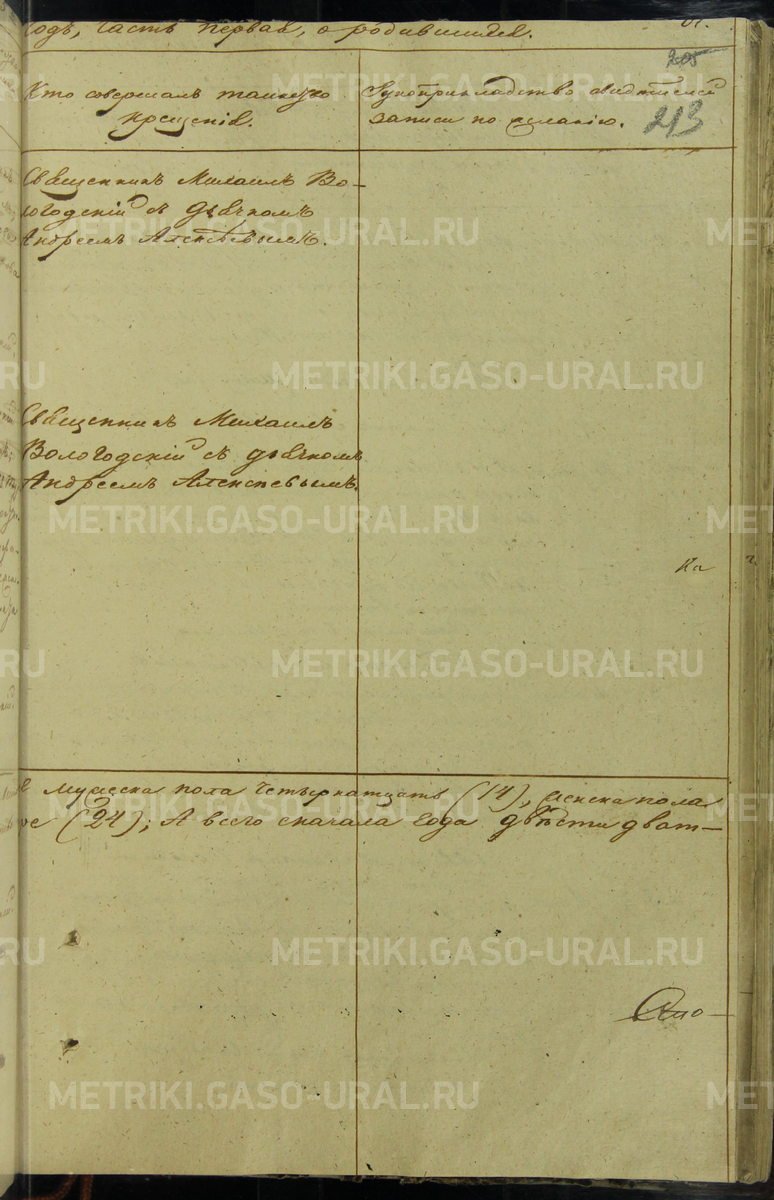 годъ, часть первая, о родившихся.
205
213
Кто совершалъ таинство
крещенія.
Рукоприкладство свидѣтелей
записи по желанію.
Священникъ Михаилъ Во-
логодскій съ дьячкомъ
Андреемъ Алексѣевымъ.
Священникъ Михаилъ
Вологодскій съ дьячкомъ
Андреемъ Алексѣевымъ.
На
мужеска пола четырнатцать (14), женска пола
ре (24); А всего сначала года двѣсти дват-
METRIKI.GASO-URAL.RU